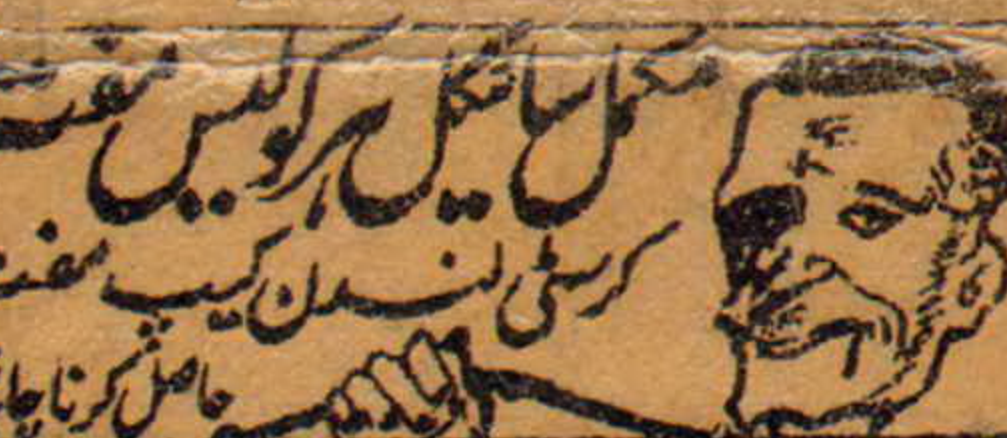 مکمل سائیکل ہرکولیس مفت
کرسٹی لندن کیپ مفت
حاصل کرنا